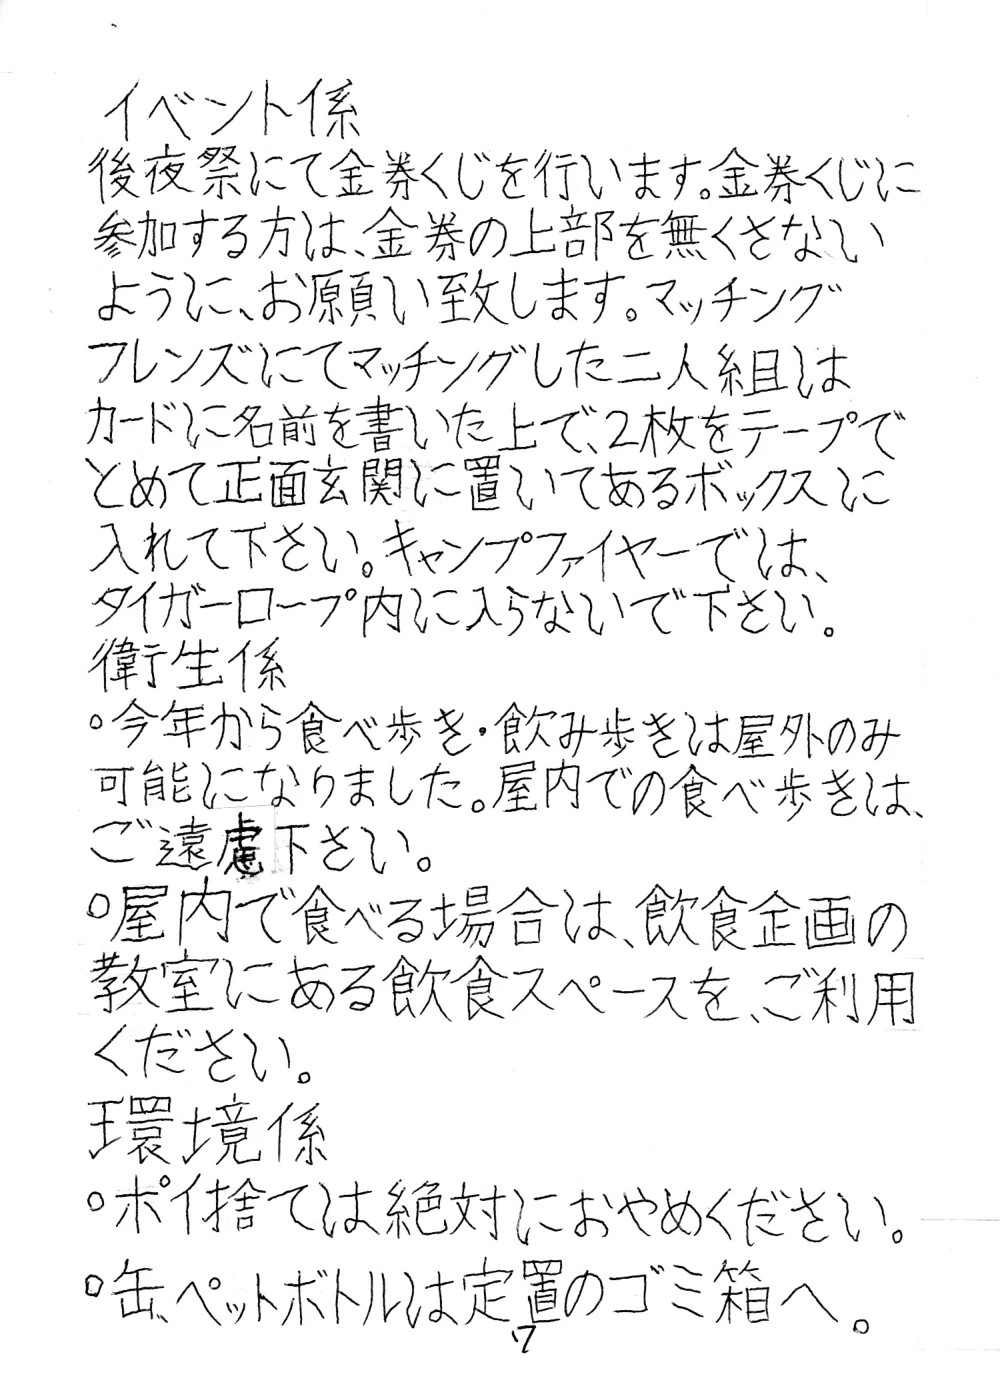 イベント係
後夜祭にて金券くじを行います。金券くじに
参加する方は、金券の上部を無くさない
ように、お願い致します。マッチング
フレンズにてマッチングした二人組は
カードに名前を書いた上で、2枚をテープで
とめて正面玄関に置いてあるボックスに
入れて下さい。キャンプファイヤーでは、
タイガーロープ内に入らないで下さい。
衛生係
○今年から食べ歩き・飲み歩きは屋外のみ
可能になりました。屋内での食べ歩きは、
ご遠慮下さい。
○屋内で食べる場合は、飲食企画の
教室にある飲食スペースを、ご利用
ください。
環境係
○ポイ捨ては絶対におやめください。
○缶、ペットボトルは定置のゴミ箱へ。
7